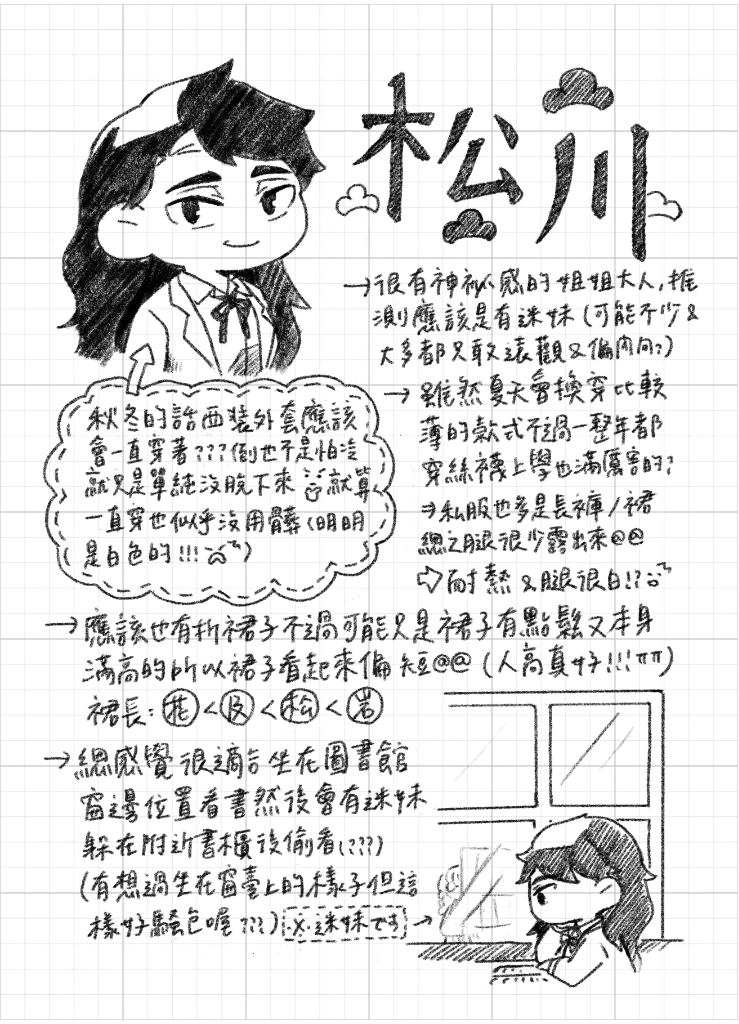 松川
→很有神祕感的姐姐大人,推
測應該是有迷妹(可能不少&
大多都只敢遠觀&偏內向?)
→雖然夏天會換穿比較
薄的款式不過一整年都
穿絲襪上學也滿厲害的?
⇒私服也多是長褲/裙
總之腿很少露出來@@
⇨耐熱&腿很白!?
秋冬的話西裝外套應該
會一直穿著???倒也不是怕冷
就只是單純沒脫下來 就算
一直穿也似乎沒用髒(明明
是白色的!!! )
→應該也有折裙子不過可能只是裙子有點鬆又本身
滿高的所以裙子看起來偏短@@(人高真好!!!ㅠㅠ)
裙長:花<及<松<岩
→總感覺很適合坐在圖書館
窗邊位置看書然後會有迷妹
躲在附近書櫃後偷看(???)
(有想過坐在窗臺上的樣子但這
樣好騷包喔???)
·×·迷妹です→